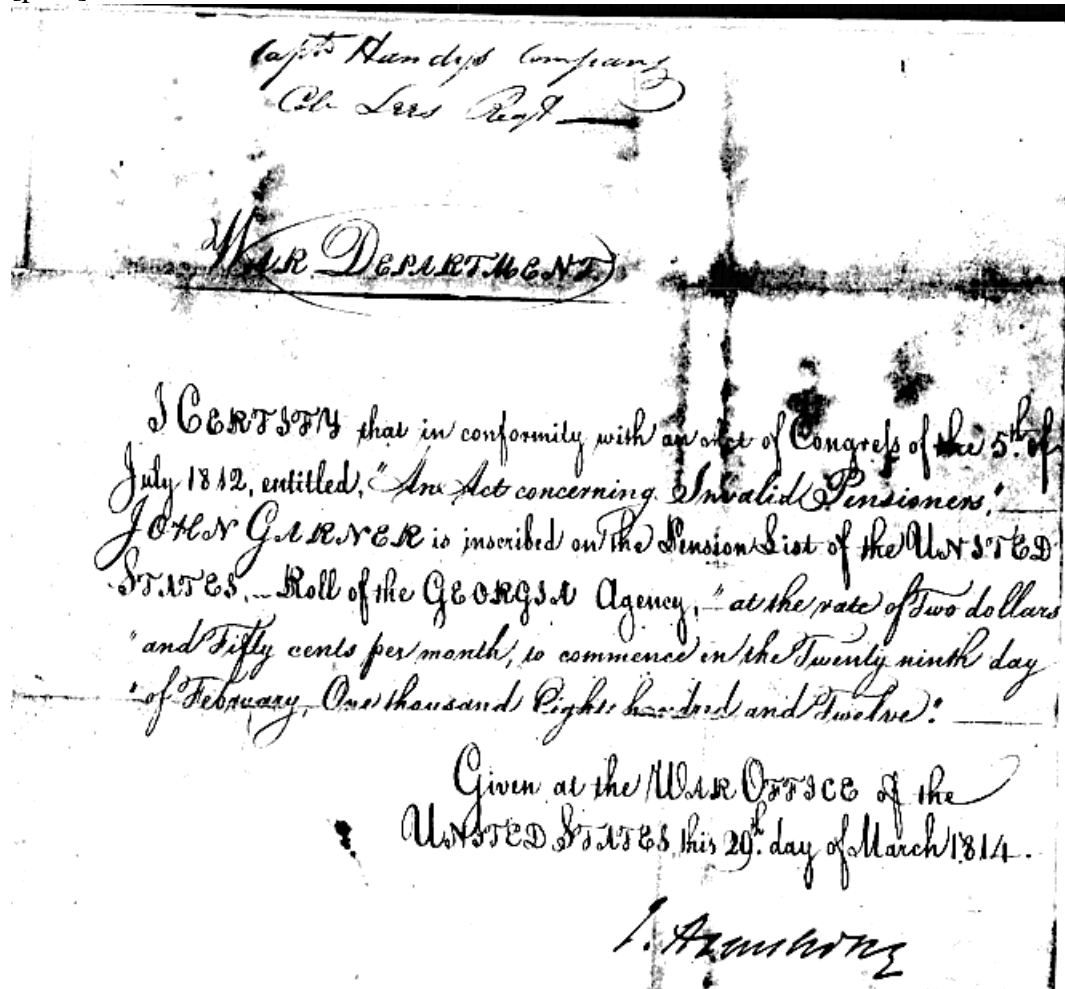 Capt Handys Company
Col. Lees Regt
WAR DEPARTMENT
I CERTIFY that in conformity with an act of Congress of the 5th of
July 1812, entitled, "An Act concerning Invalid Pensioners,"
JOHN GARNER is inscribed on the Pension List of the UNITED
STATES, – Roll of the GEORGIA Agency, "at the rate of Two dollars
"and Fifty cents per month, to commence on the Twenty ninth day
"of February, One thousand Eight hundred and Twelve."
Given at the WAR OFFICE of the
UNITED STATES, this 29th. day of March 1814.
J. Armstrong